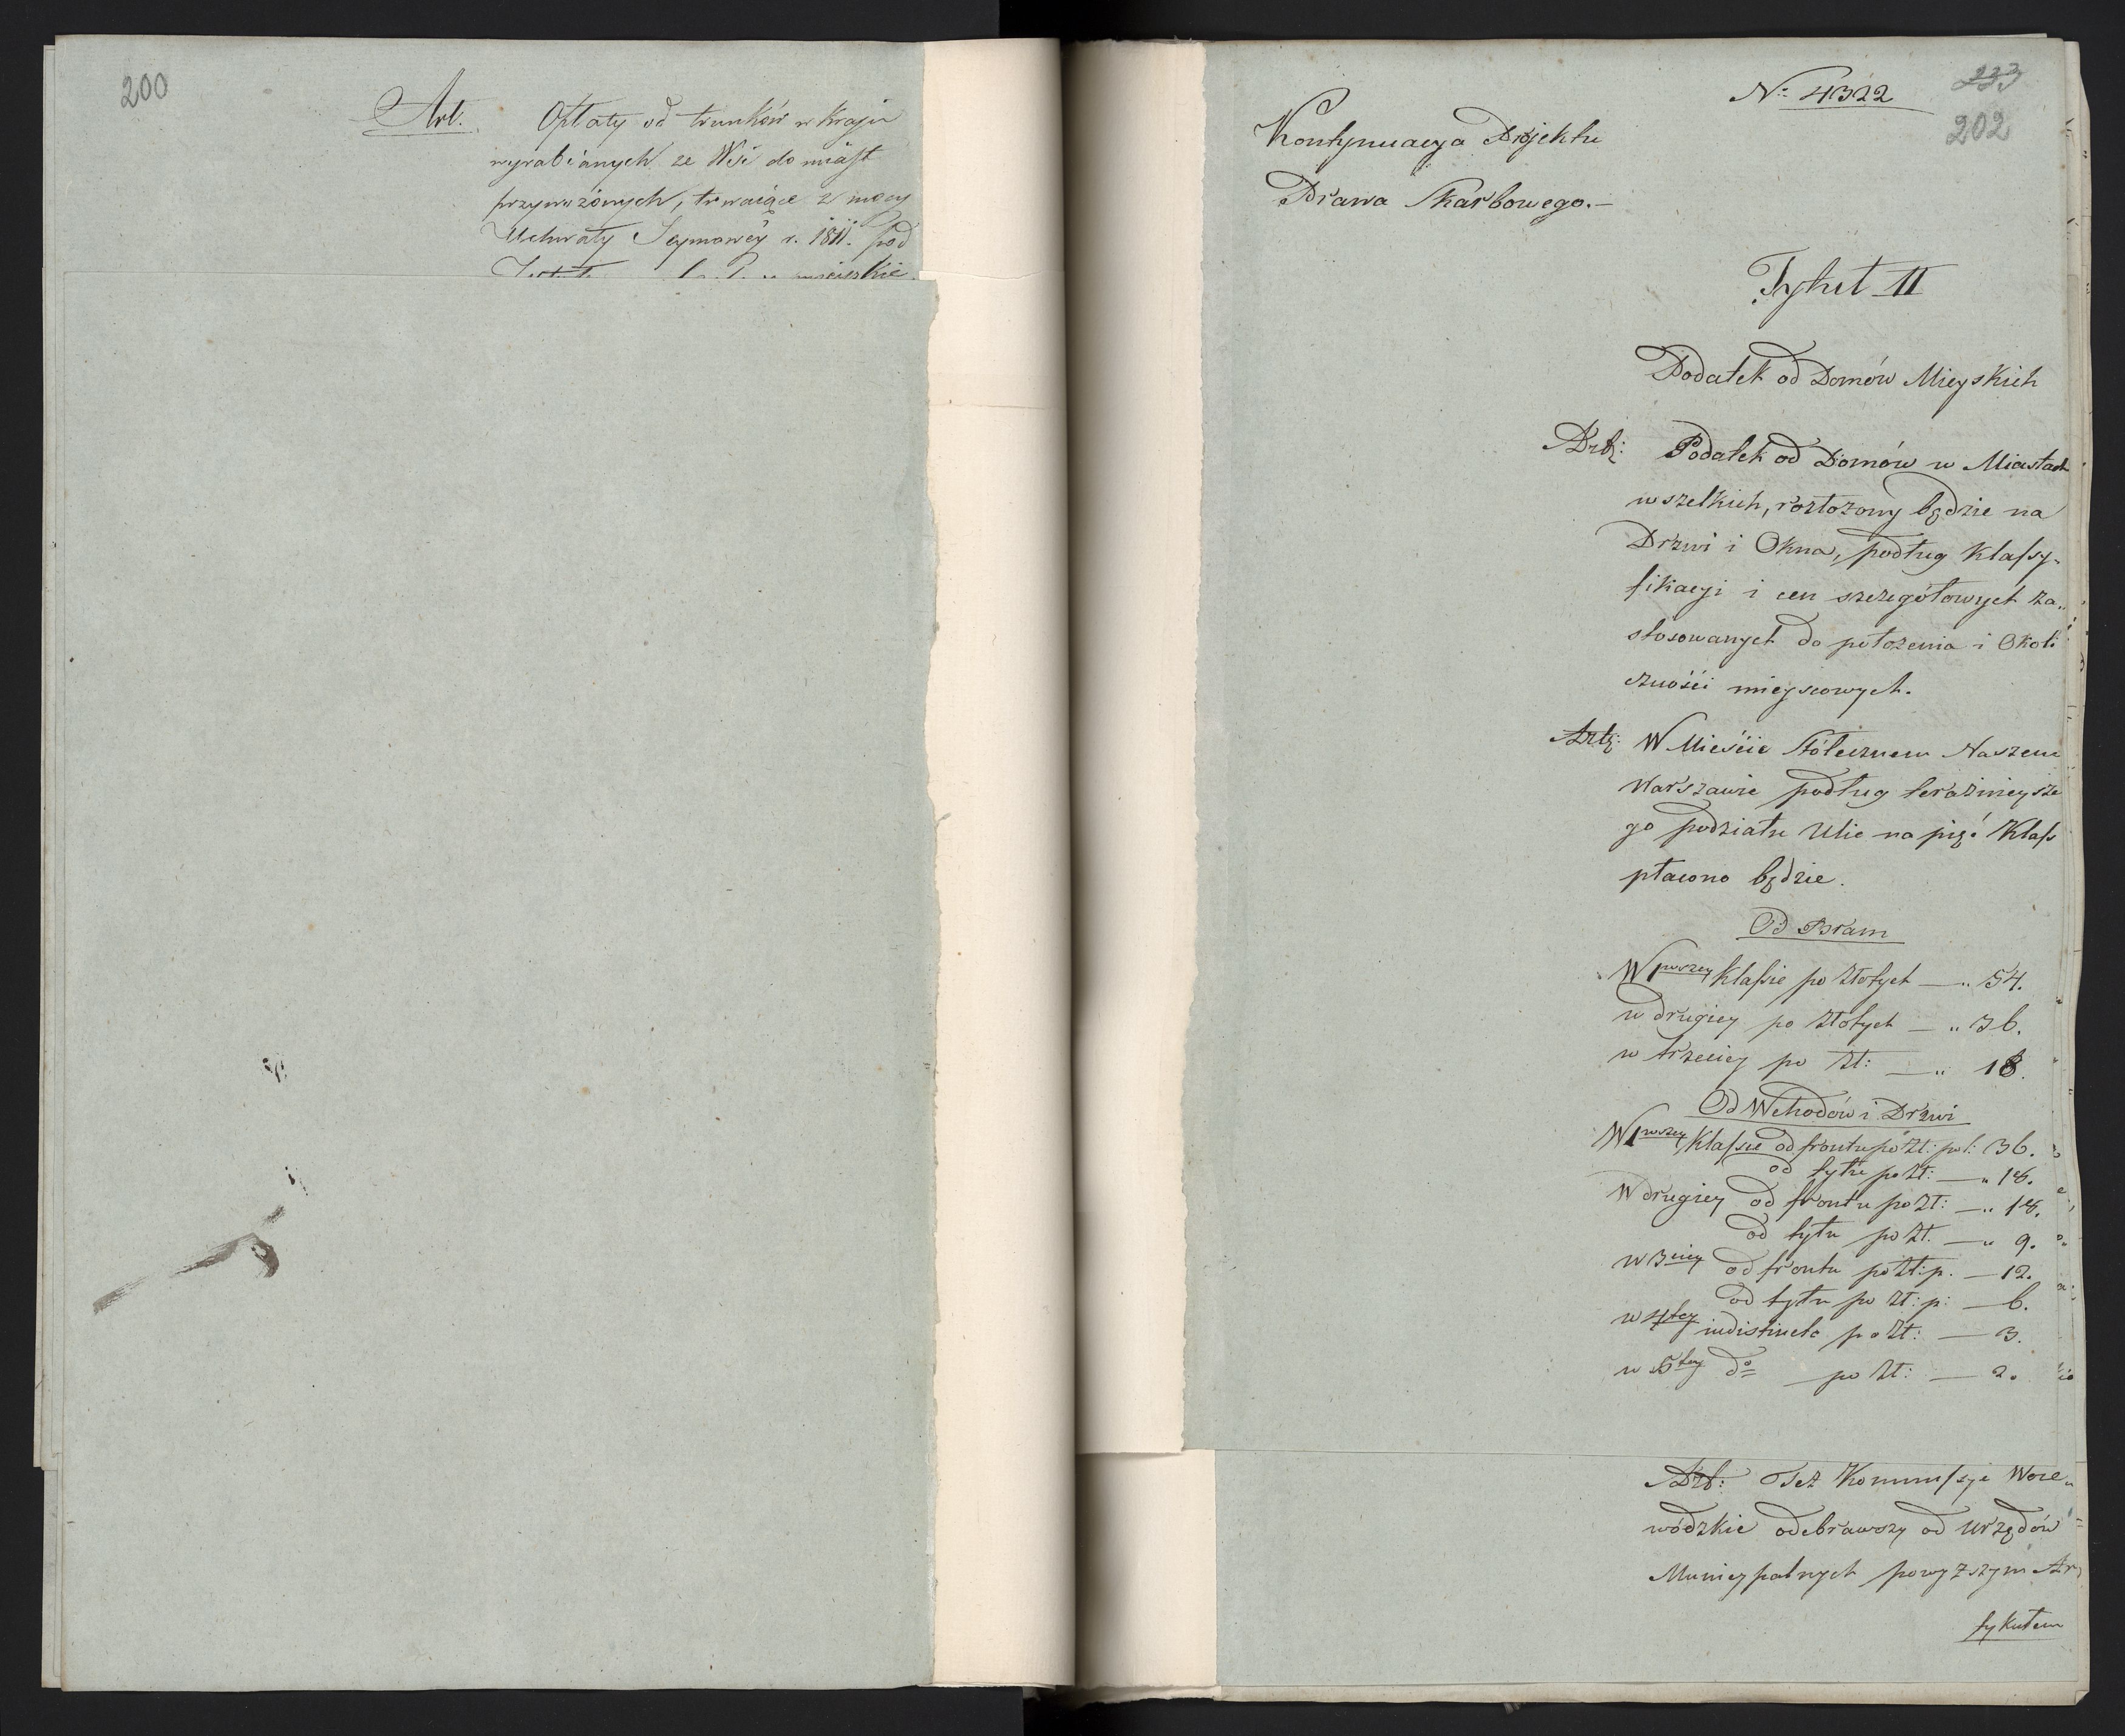 200
Art. Opłaty od trunków w kraju
wyrabianych ze Wsi do miast
przywożonych, trwaiące z mocy
Uchwały Seymowéy r. 1811. pod
No 4322
233
202
Kontynuacya Projektu
Prawa Skarbowego.—
Tytuł II
Podatek od Domów Mieyskich
Art: Podatek od Domów w Miastach
wszelkich, rozłożony będzie na
Drzwi i Okna, podług Klassy-
fikacyi i cen szczegółowych za„
stosowanych do położenia i Okoli
czności mieyscowych.
Art: W Mieście Stółecznem Naszem
Warszawie podług teraźnieysze
go podziału Ulic na pięć Klass
płacono będzie.
Od Bram
W 1wszey Klassie po Złotych — „ 54.
w drugiey po Złotych — „ 36.
w trzeciey po Zł: — „ 18.
Od Wchodów i Drzwi
W 1wszey Klassie od frontu po Zł: pol: 36.
od tyłu po Zł: — „ 18.
W drugiey od frontu po Zł: — „ 18.
od tyłu po Zł. — „ 9.
w 3ciey od frontu po Zł: p. — 12.
od tyłu po Zł: p: — 6.
w 4tey indistincto po Zł: — 3.
w 5tey do po Zł: — 2.
Art: Też Kommissye Woie„
wódzkie odebrawszy od Urzędów
Municypalnych powyższym Ar„
tykułem